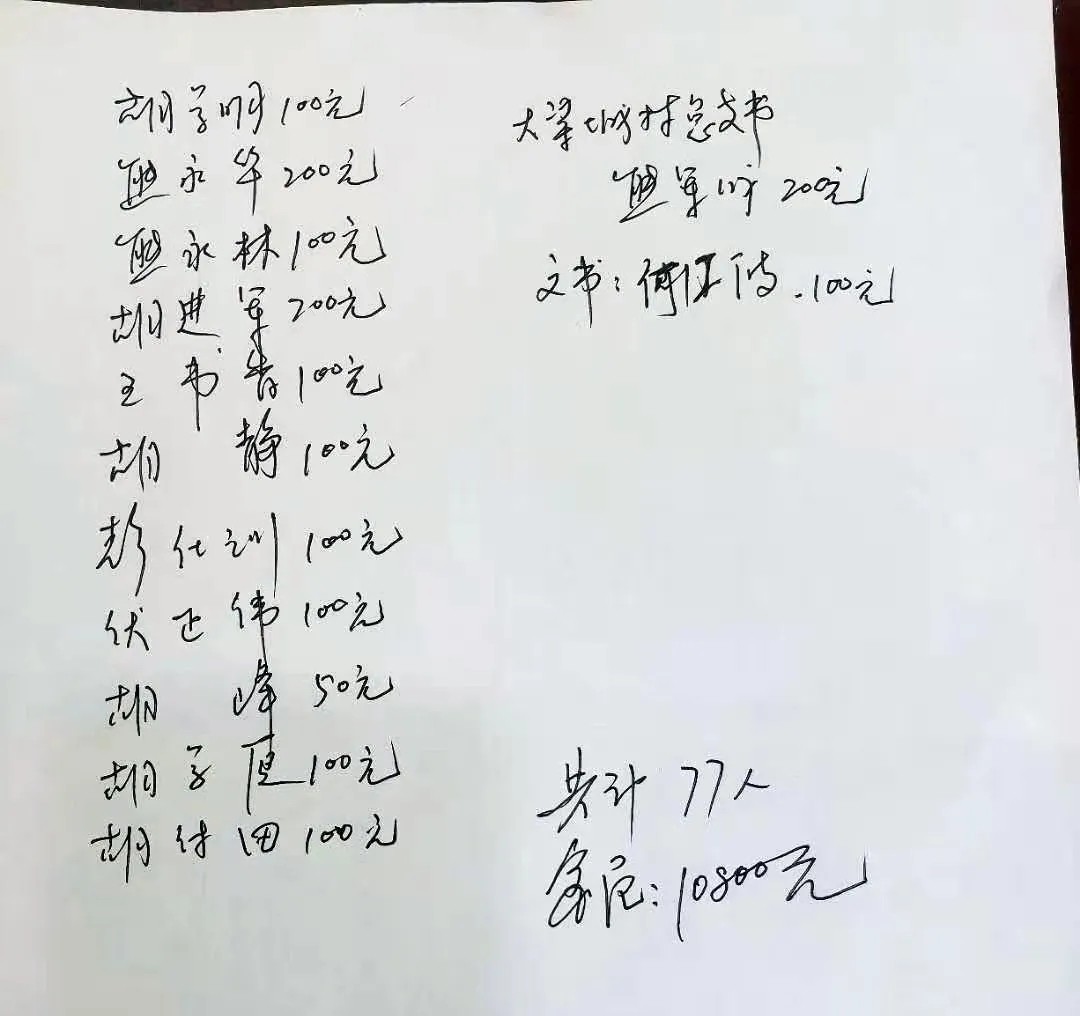 胡学明100元
熊永华200元
熊永林100元
胡进军200元
王书香100元
胡 静100元
彭仕训100元
伏正伟100元
胡 峰50元
胡学 100元
胡付田100元
大梁城村总支书
熊军 200元
文书：何 100元
共计 77人
金额：10800元